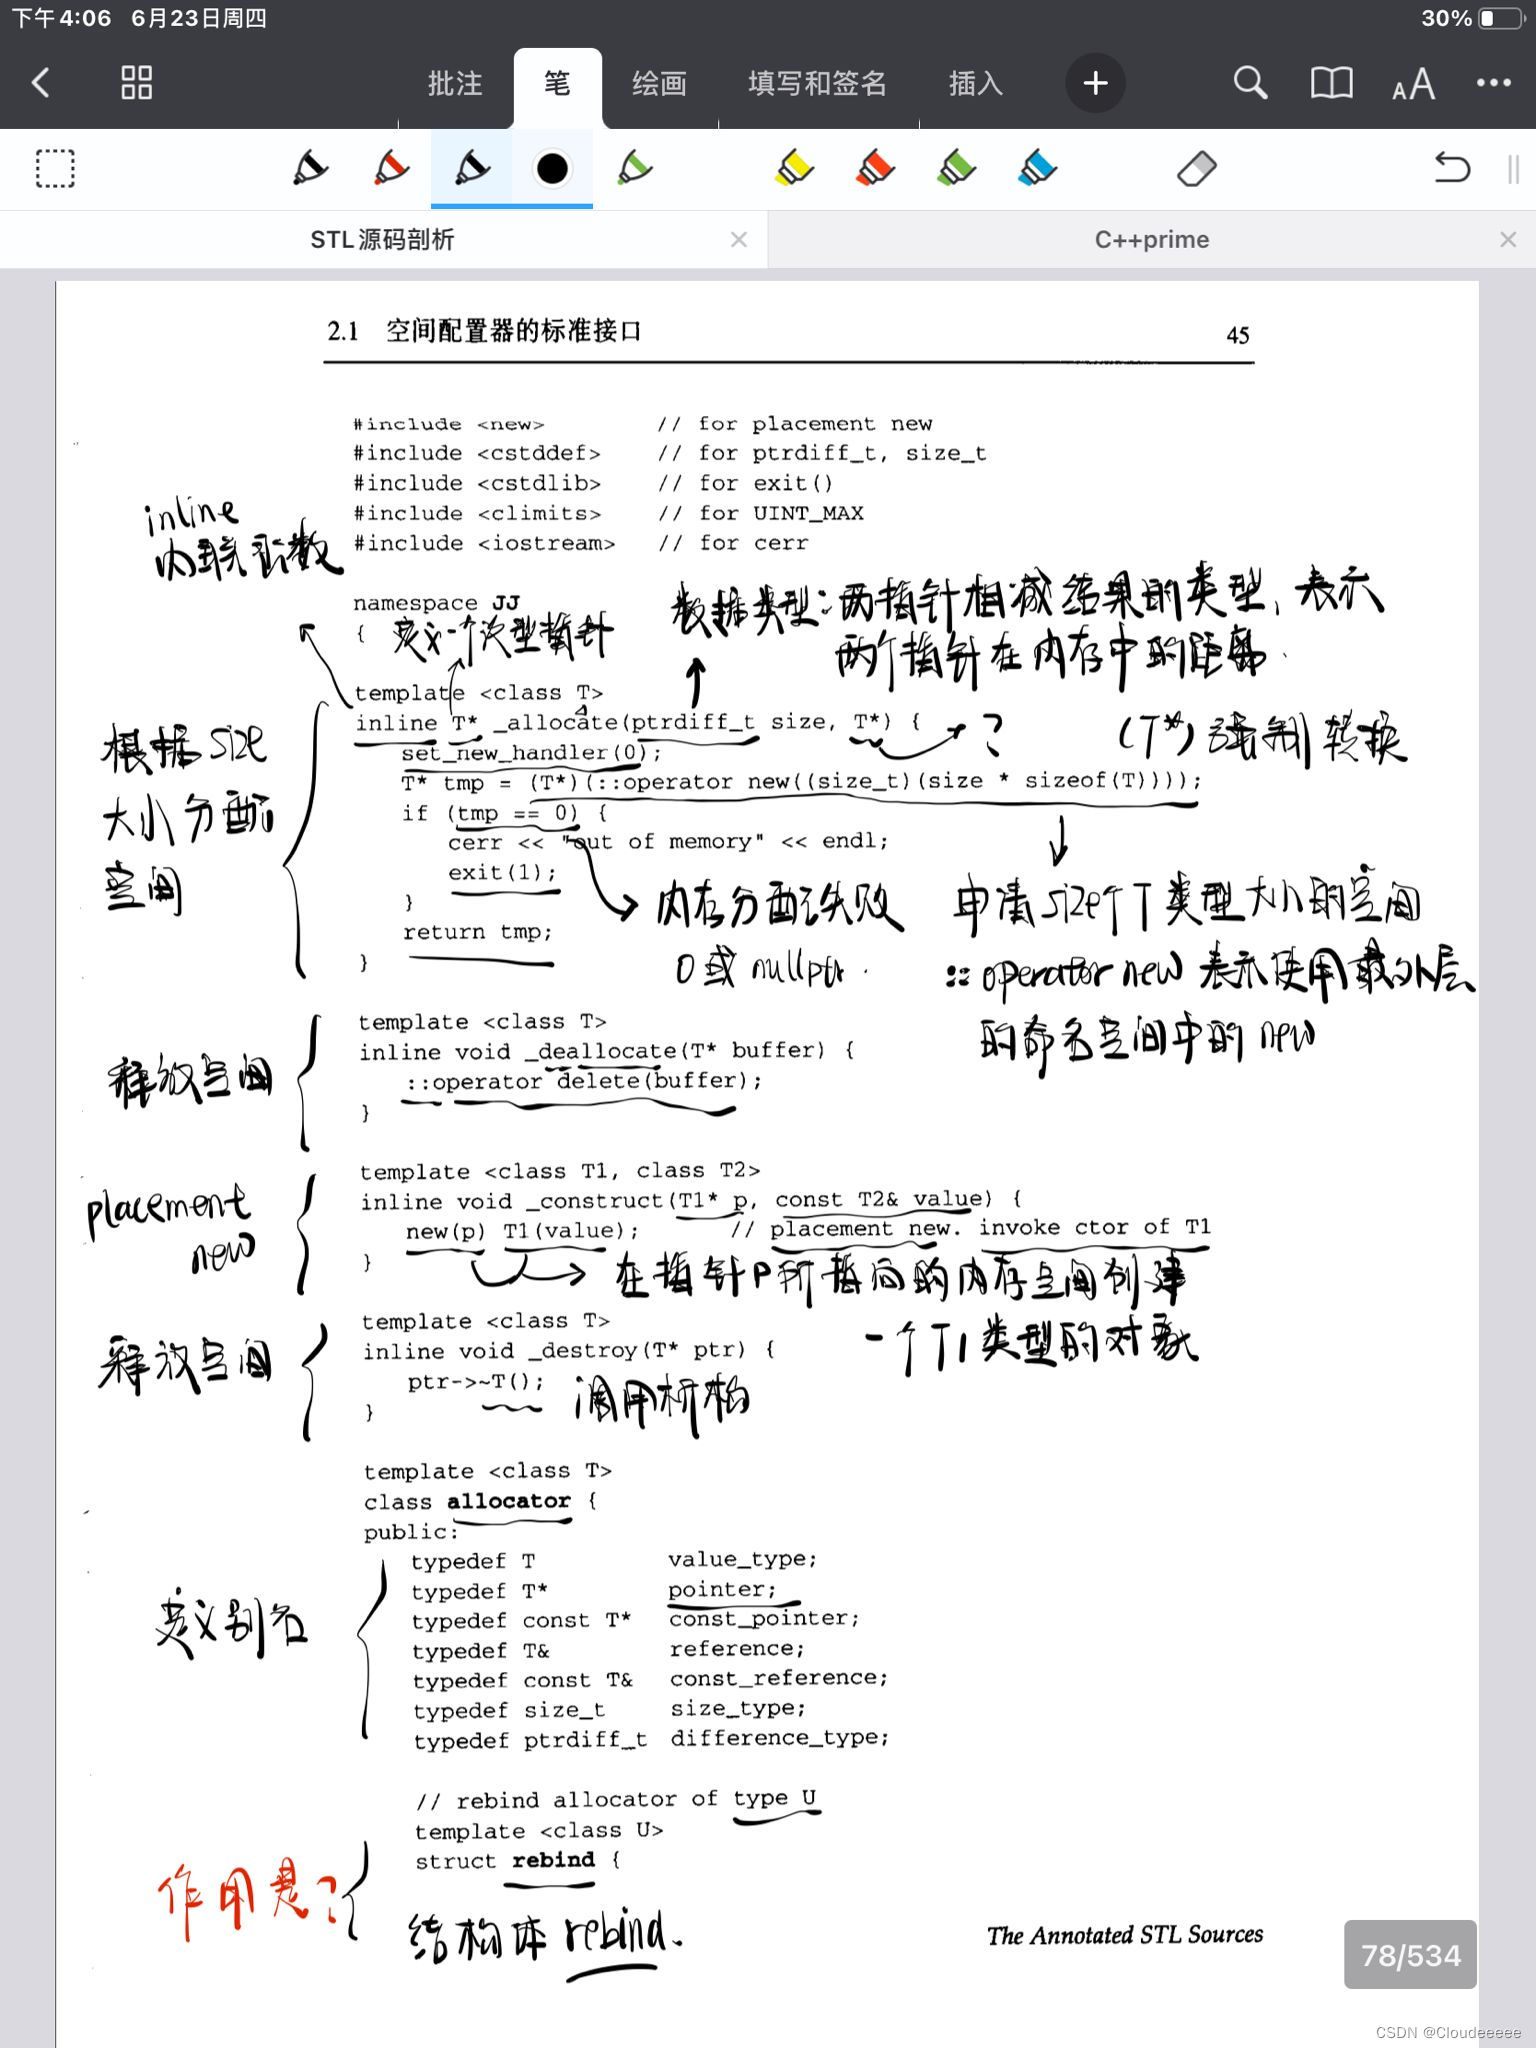 下午4:06 6月23日周四 30%
批注 笔 绘画 填写和签名 插入
STL源码剖析 C++prime
2.1 空间配置器的标准接口 45
#include <new> // for placement new
#include <cstddef> // for ptrdiff_t, size_t
#include <cstdlib> // for exit()
#include <climits> // for UINT_MAX
#include <iostream> // for cerr
inline
内联函数
namespace JJ
{
定义一个泛型指针
数据类型:两指针相减结果的类型,表示
两个指针在内存中的距离.
template <class T>
inline T* _allocate(ptrdiff_t size, T*) {
?
(T*)强制转换
set_new_handler(0);
T* tmp = (T*)(::operator new((size_t)(size * sizeof(T))));
if (tmp == 0) {
cerr << "out of memory" << endl;
exit(1);
}
return tmp;
}
根据size
大小分配
空间
内存分配失败
0或nullptr.
申请size个T类型大小的空间
::operator new 表示使用最外层
的命名空间中的new
template <class T>
inline void _deallocate(T* buffer) {
::operator delete(buffer);
}
释放空间
template <class T1, class T2>
inline void _construct(T1* p, const T2& value) {
new(p) T1(value); // placement new. invoke ctor of T1
}
placement
new
在指针p所指向的内存空间创建
一个T1类型的对象
template <class T>
inline void _destroy(T* ptr) {
ptr->~T();
}
释放空间
调用析构
template <class T>
class allocator {
public:
typedef T value_type;
typedef T* pointer;
typedef const T* const_pointer;
typedef T& reference;
typedef const T& const_reference;
typedef size_t size_type;
typedef ptrdiff_t difference_type;
定义别名
// rebind allocator of type U
template <class U>
struct rebind {
作用是?
结构体rebind.
The Annotated STL Sources
78/534
CSDN @Cloudeeeee